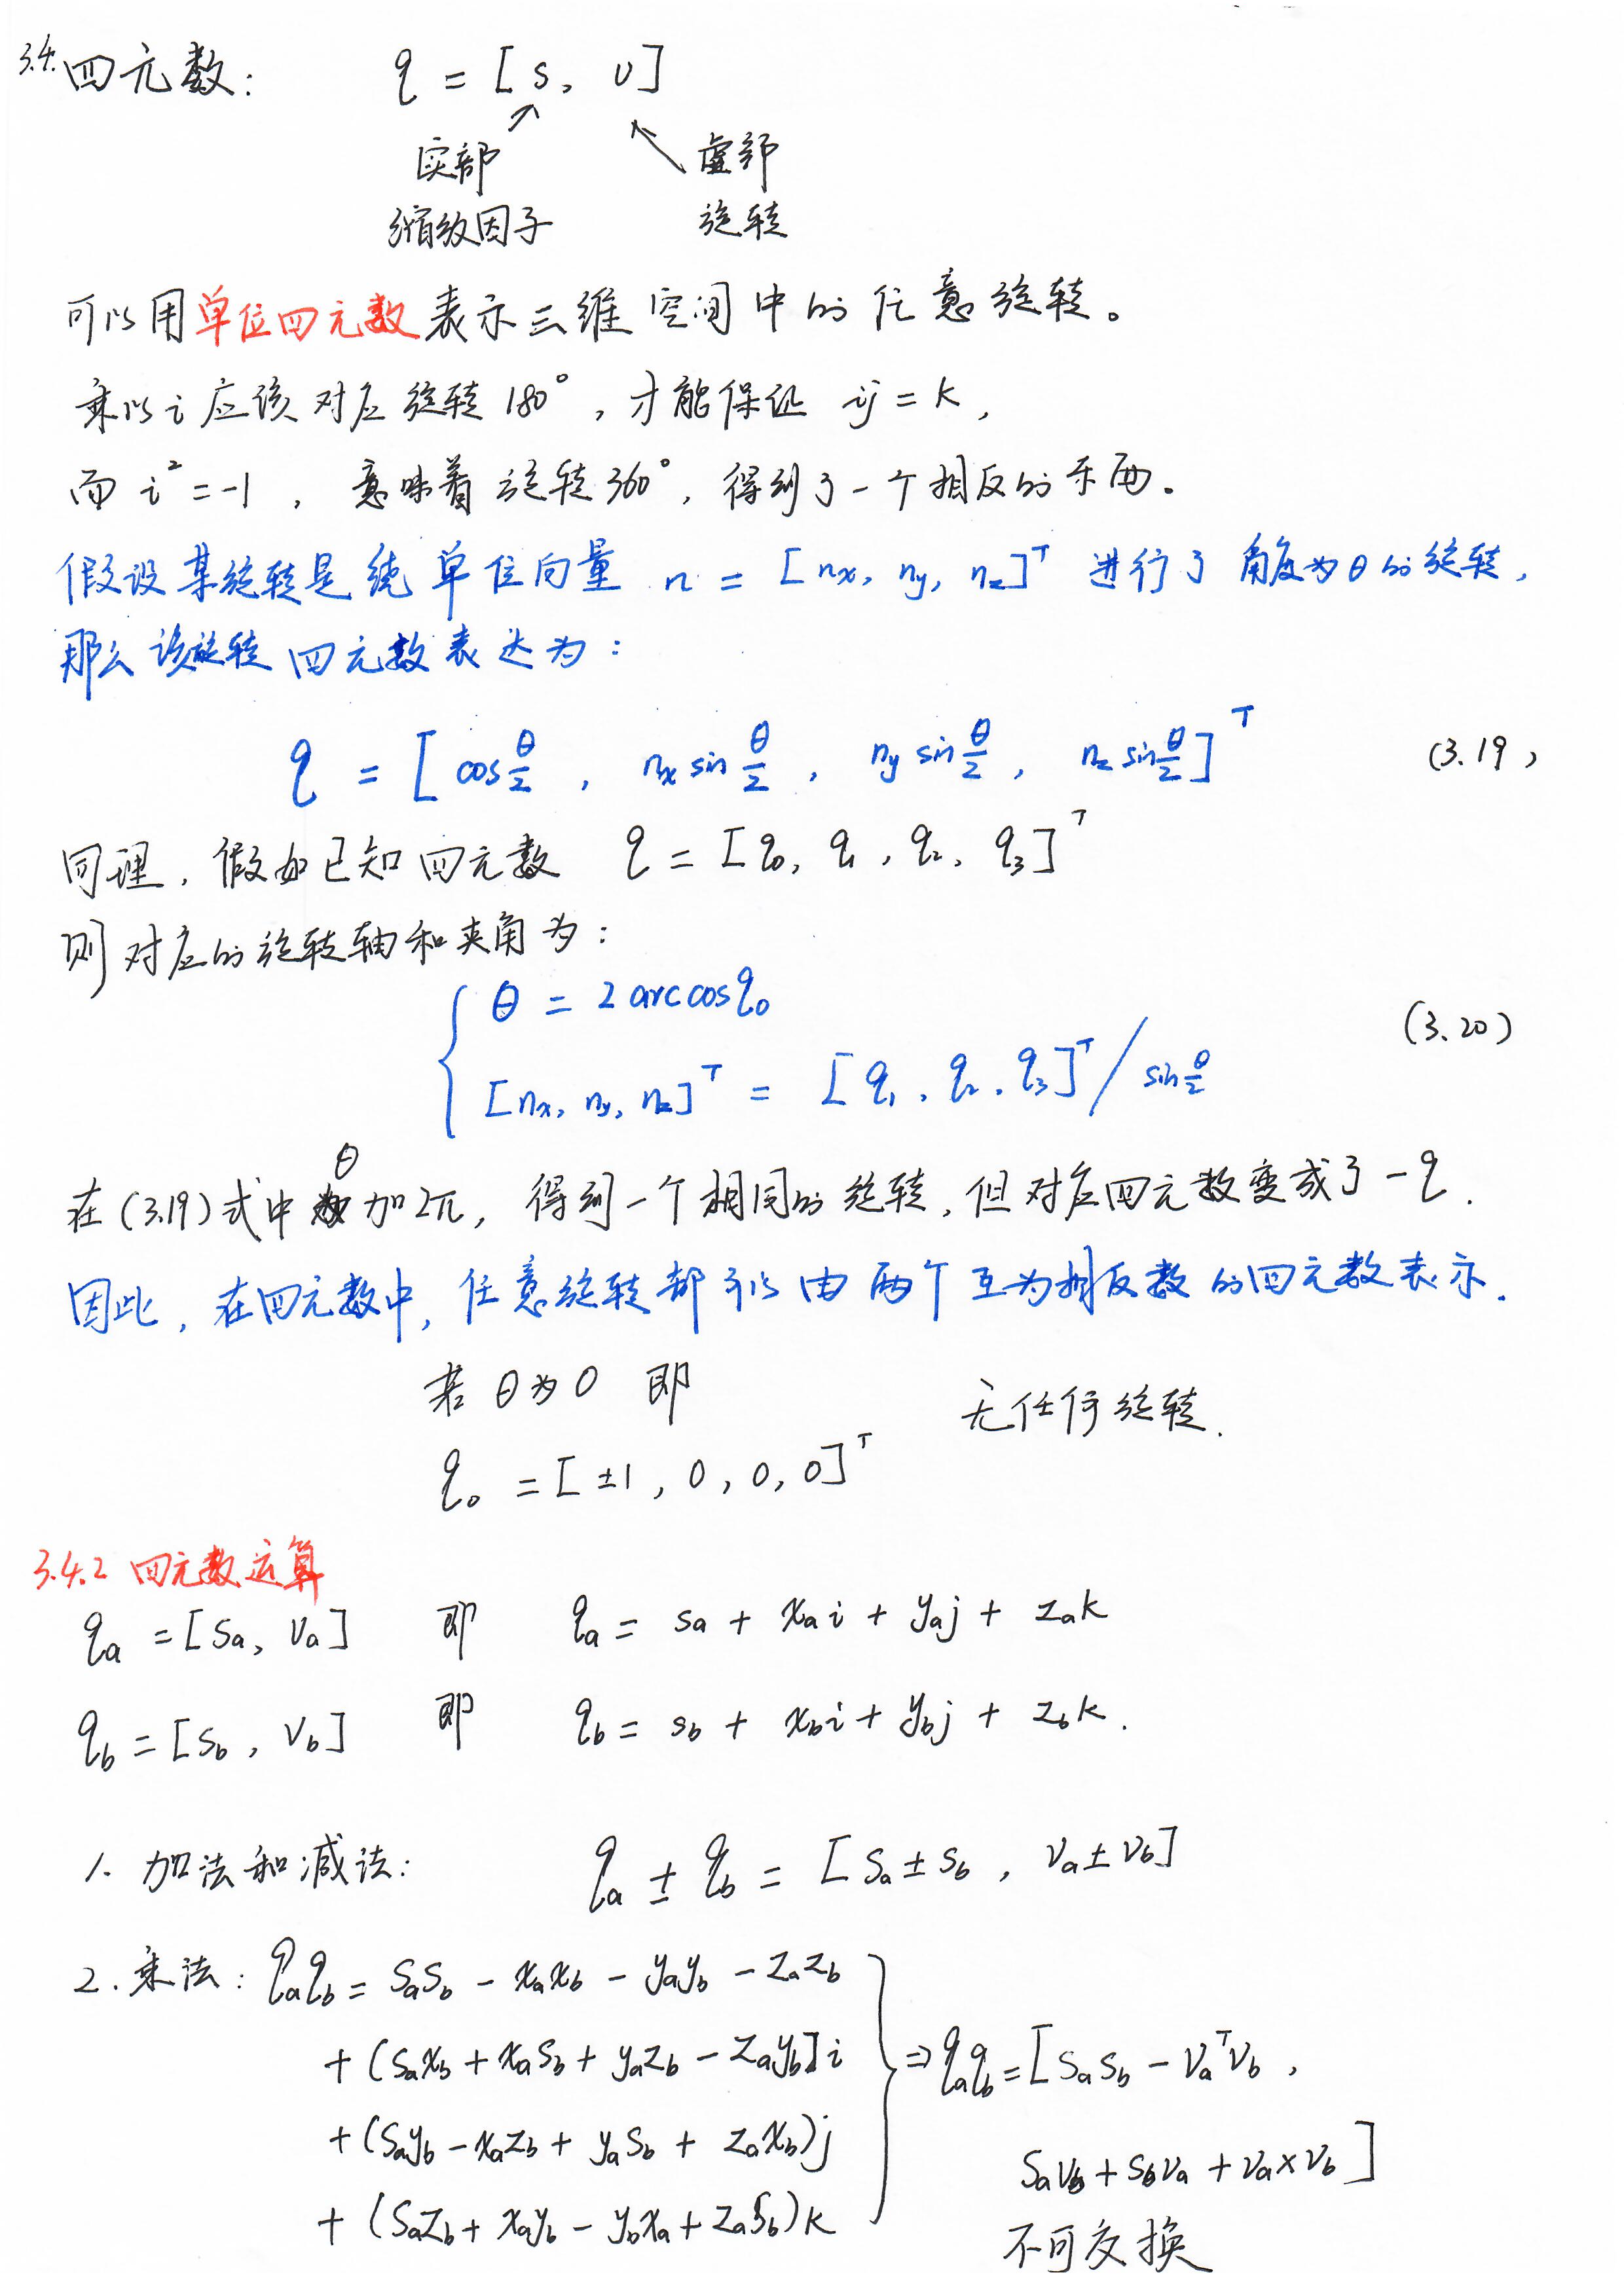 3.4. 四元数: q = [s, v]
实部 虚部
缩放因子 旋转
可以用单位四元数表示三维空间中的任意旋转。
乘以i应该对应旋转180°,才能保证 ij = k,
而 i² = -1 , 意味着旋转360°, 得到了一个相反的东西。
假设某旋转是绕单位向量 n = [nx, ny, nz]ᵀ 进行了角度为θ的旋转,
那么该旋转四元数表达为:
q = [cos θ/2 , nx sin θ/2 , ny sin θ/2 , nz sin θ/2]ᵀ (3.19)
同理, 假如已知四元数 q = [q₀, q₁, q₂, q₃]ᵀ
则对应的旋转轴和夹角为:
{ θ = 2 arccos q₀
[nx, ny, nz]ᵀ = [q₁, q₂, q₃]ᵀ / sin θ/2 (3.20)
在(3.19)式中θ加2π, 得到一个相同的旋转, 但对应四元数变成了 -q.
因此, 在四元数中, 任意旋转都可以由两个互为相反数的四元数表示.
若 θ为0 即 无任何旋转.
q₀ = [±1, 0, 0, 0]ᵀ
3.4.2 四元数运算
qa = [sa, va] 即 qa = sa + xai + yaj + zak
qb = [sb, vb] 即 qb = sb + xbi + ybj + zbk.
1. 加法和减法: qa ± qb = [sa ± sb , va ± vb]
2. 乘法: qaqb = sasb - xaxb - yayb - zazb
+ (saxb + xasb + yazb - zayb]i ⇒ qaqb = [sasb - vaᵀvb ,
+ (sayb - xazb + yasb + zaxb)j
savb + sbva + va×vb]
+ (sazb + xayb - ybxa + zasb)k
不可交换